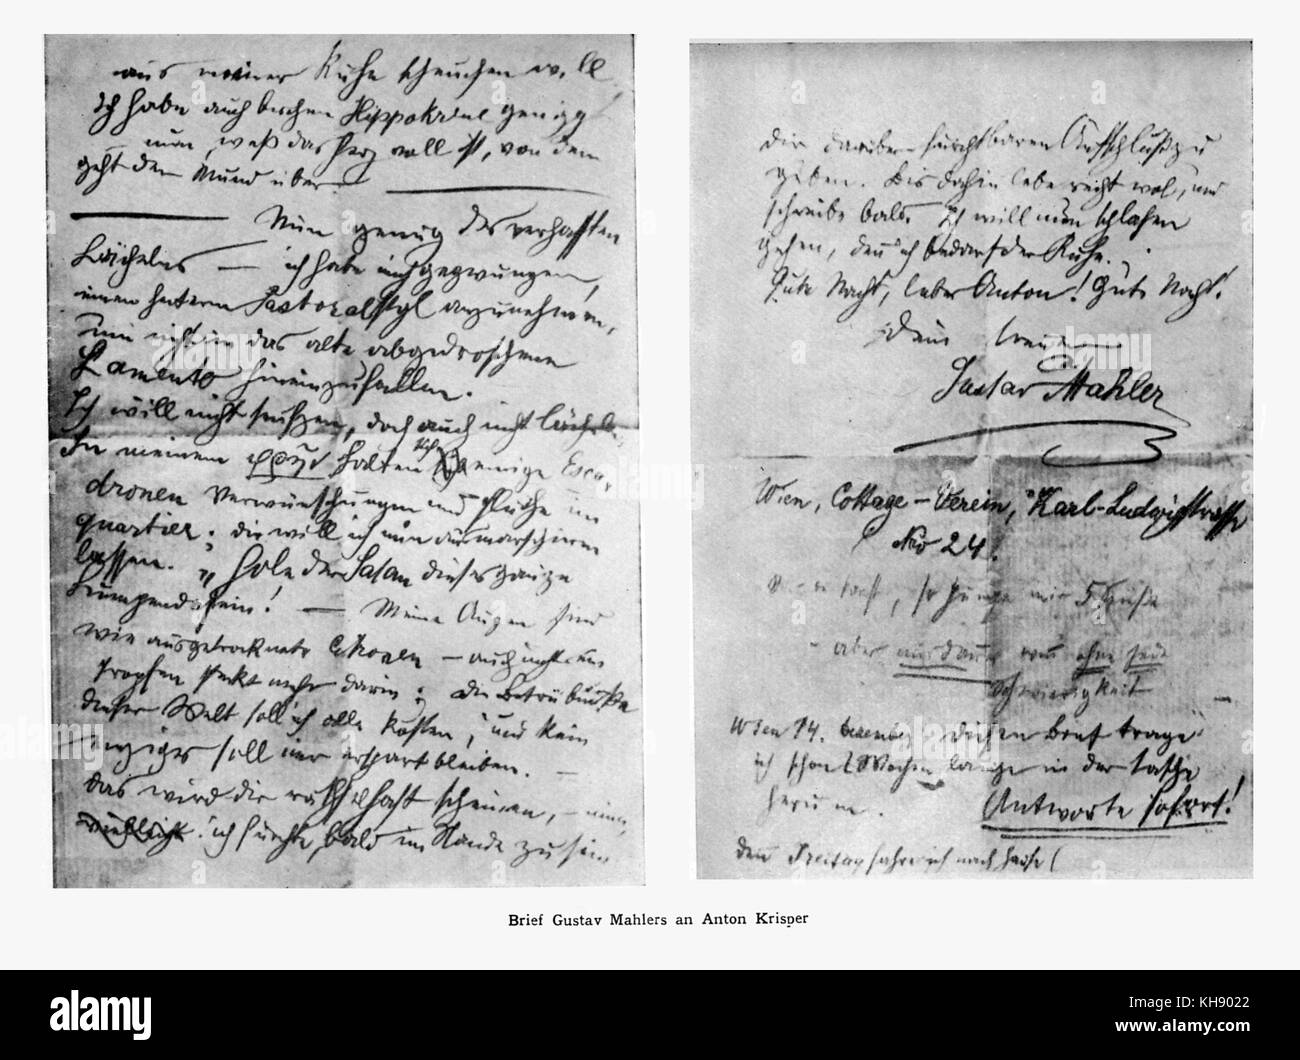 aus meiner Ruhe scheuchen will
ich habe auch bischen Hippokrene genippt
nun, weß das Herz voll ist, von dem
geht der Mund über
Nun genug des verhaßten
Lächelns — ich habe mich gezwungen,
einen heitern Pastoralstyl anzunehmen,
um nicht in das alte abgedroschene
Lamento hineinzufallen.
Ich will nicht seufzen, doch auch nicht lächeln.
In meinem halten sich einige Esca-
dronen Verwünschungen und Flüche im
quartier; die will ich nun ausmarschieren
lassen. „Hole der Satan dieses ganze
Lumpendasein! — Meine Augen sind
wie ausgetrocknete Citronen — auch nicht ein
Tropfen steckt mehr darin; die Betrübnisse
dieser Welt soll ich alle kosten; und kein
einziges soll mir erspart bleiben. —
Das wird dir räthselhaft scheinen, — nun,
vielleicht ich fürchte, bald im Stande zu sein
Dir darüber furchtbaren Aufschluß zu
geben. Bis dahin lebe recht wol, und
schreibe bald. Ich will nun schlafen
gehen, denn ich bedarf der Ruhe.
Gute Nacht, lieber Anton! Gute Nacht.
Dein treuer
Gustav Mahler
Wien, Cottage-Verein, Karl-Ludwigstrasse
Nro 24.
aber ohne jede
Schwierigkeit
Wien 14. Diesen Brief trage
ich schon Wochen lange in der Tasche
herum. Antworte sofort!
denn Freitag fahre ich nach Hause (
Brief Gustav Mahlers an Anton Krisper
alamy
a
alamy
Image ID: KH9022
www.alamy.com